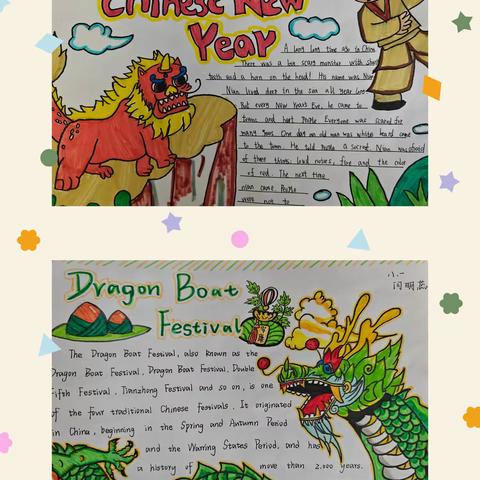 Chinese New
Year
A long long time ago in China
There was a big scary monster with sharp
teeth and a horn on the head! His name was Nian
Nian lived deep in the sea all year long
But every New Year's Eve, he came to
towns and hurt people Everyone was scared for
many years. One day an old man with white beard came
to the town. He told people a secret. Nian was afraid
of three things: loud noises, fire and the color
of red. The next time
nian came. People
were not to
Dragon Boat
Festival
八.一
闫明蕊
The Dragon Boat Festival, also known as the
Dragon Boat Festival, Dragon Boat Festival, Double
Fifth Festival, Tianzhong Festival and so on, is one
of the four traditional Chinese festivals. It originated
in China, beginning in the Spring and Autumn Period
and the Warring States Period, and has
a history of more than 2,000 years.